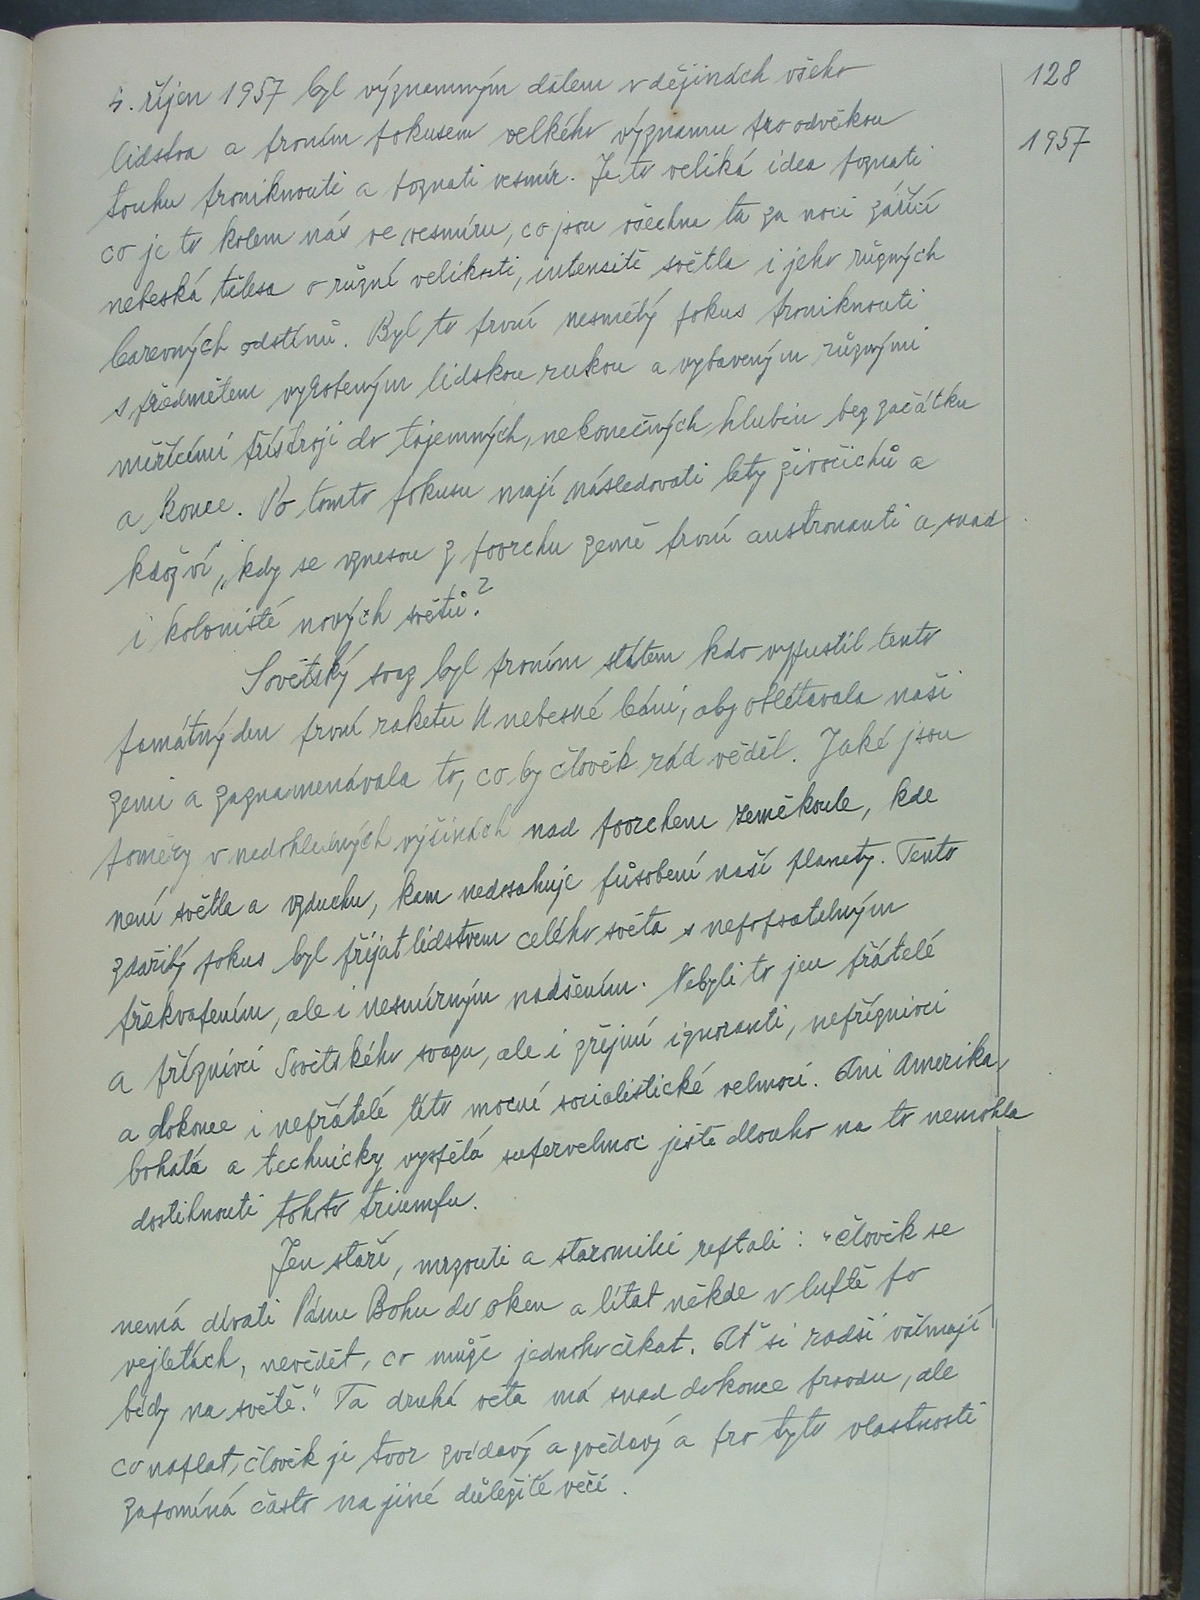 128
1957
4. říjen 1957 byl významným datem v dějinách všeho
lidstva a prvním pokusem velkého významu pro odvěkou
touhu proniknouti a poznati vesmír. Je to veliká idea poznati
co je to kolem nás ve vesmíru, co jsou všechna ta za noci zářící
nebeská tělesa o různé velikosti, intensitě světla i jeho různých
barevných odstínů. Byl to první nesmělý pokus proniknouti
s předmětem vyrobeným lidskou rukou a vybaveným různými
měřícími přístroji do tajemných, nekonečných hlubin bez začátku
a konce. Po tomto pokusu mají následovati lety živočichů a
kdož ví, kdy se vznesou z povrchu země první austronauti a snad
i kolonisté nových světů?
Sovětský svaz byl prvním státem kdo vypustil tento
památný den první raketu k nebeské báni, aby oblétavala naši
zemi a zaznamenávala to, co by člověk rád věděl. Jaké jsou
poměry v nedohledných výšinách nad povrchem zeměkoule, kde
není světla a vzduchu, kam nedosahuje působení naší planety. Tento
zdařilý pokus byl přijat lidstvem celého světa s nepopsatelným
překvapením, ale i nesmírným nadšením. Nebyli to jen přátelé
a příznivci Sovětského svazu, ale i zřejmí ignoranti, nepříznivci
a dokonce i nepřátelé této mocné socialistické velmoci. Ani Amerika,
bohatá a technicky vyspělá supervelmoc ještě dlouho na to nemohla
dostihnouti tohoto triumfu.
Jen staří, mrzouti a staromilci reptali: "člověk se
nemá dívati Pánu Bohu do oken a lítat někde v luftě po
vejletách, nevědět, co může jednoho čekat. Ať si radši všímají
bídy na světě." Ta druhá věta má snad dokonce pravdu, ale
co naplat, člověk je tvor zvídavý a zvědavý a pro tyto vlastnosti
zapomíná často na jiné důležité věci.